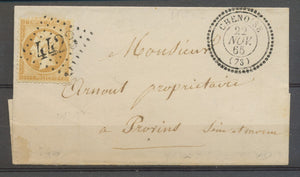 CHENOISE
22
NOV.
65
(73)
Monsieur
Arnout propriétaire
à Provins Seine et marne